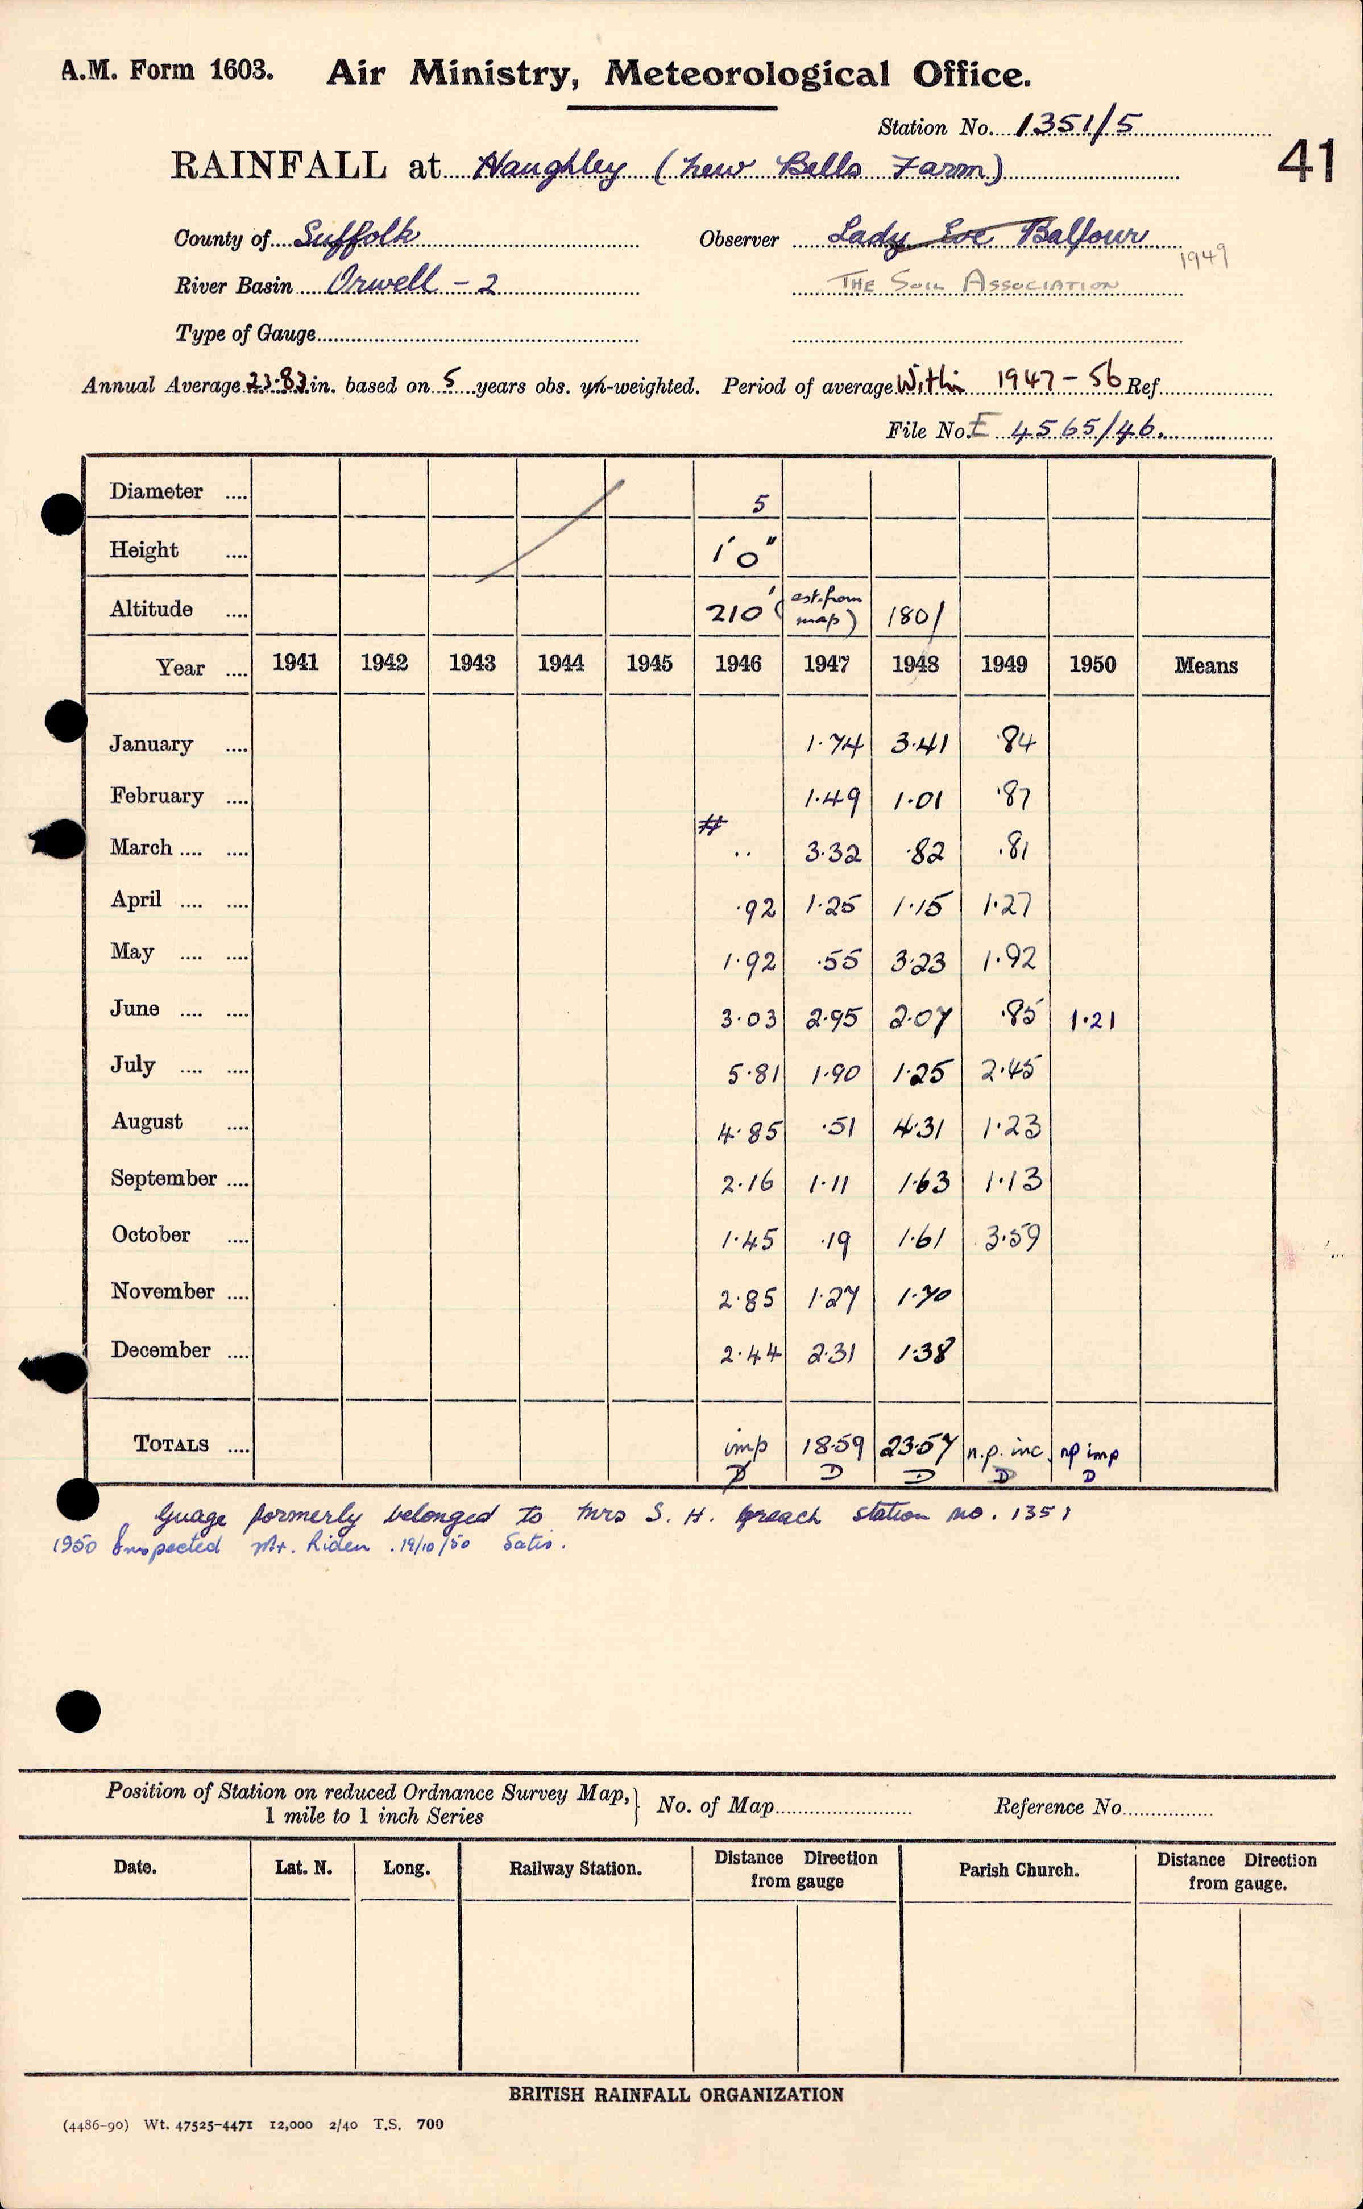 A.M. Form 1603. Air Ministry, Meteorological Office.
Station No. 1351/5
41
RAINFALL at Haughley (New Bells Farm)
County of Suffolk Observer Lady Eve Balfour 1949
River Basin Orwell - 2 THE SOIL ASSOCIATION
Type of Gauge
Annual Average 23.83 in. based on 5 years obs. un-weighted. Period of average Within 1947-56 Ref
File No. E 4565/46.
Diameter .... 5
Height .... 1'0"
Altitude .... 210' (est. from map) 180'
Year .... 1941 1942 1943 1944 1945 1946 1947 1948 1949 1950 Means
January .... 1.74 3.41 .84
February .... 1.49 1.01 .87
March .... .... # .. 3.32 .82 .81
April .... .... .92 1.25 1.15 1.27
May .... .... 1.92 .55 3.23 1.92
June .... .... 3.03 2.95 2.07 .85 1.21
July .... .... 5.81 1.90 1.25 2.45
August .... 4.85 .51 4.31 1.23
September .... 2.16 1.11 1.63 1.13
October .... 1.45 .19 1.61 3.59
November .... 2.85 1.27 1.70
December .... 2.44 2.31 1.38
TOTALS .... imp 18.59 23.57 n.p. inc. np imp
D D D D D
Guage formerly belonged to Mrs S. H. station no. 1351
1950 Inspected Mr. Riden . 19/10/50 Satis.
Position of Station on reduced Ordnance Survey Map, } No. of Map Reference No.
1 mile to 1 inch Series
Date. Lat. N. Long. Railway Station. Distance Direction from gauge Parish Church. Distance Direction from gauge.
BRITISH RAINFALL ORGANIZATION
(4486-90) Wt. 47525-4471 12,000 2/40 T.S. 700